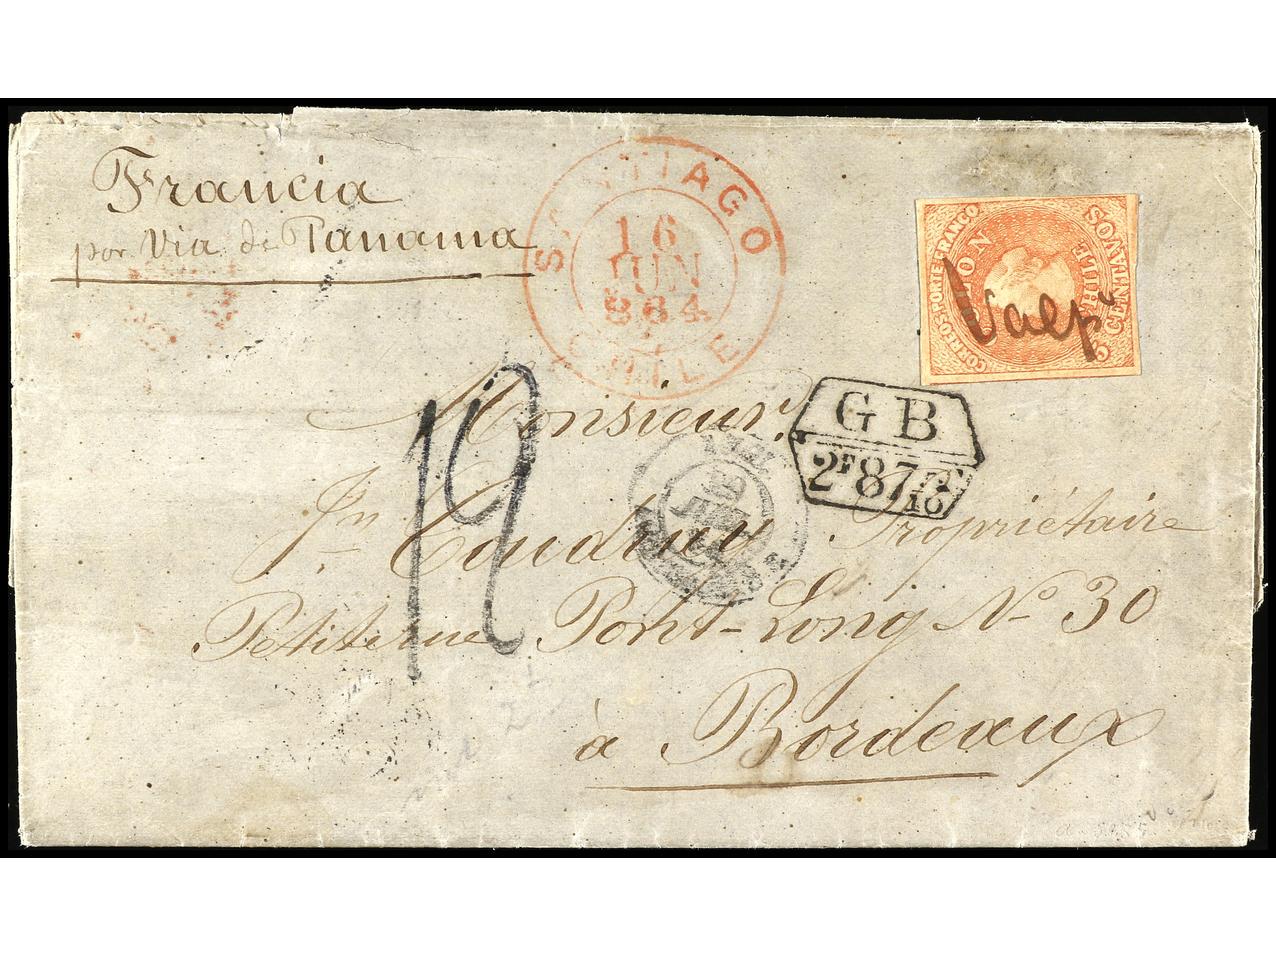 Francia
por Via de Panama
SANTIAGO
16
JUN
864
CHILE
CORREOS PORTE FRANCO
COLON
CHILE
5 CENTAVOS
Valpo
GB
2F87 5/10
12
Monsieur
Jn Coudray Propriétaire
Petite rue Pont-Long No 30
à Bordeaux